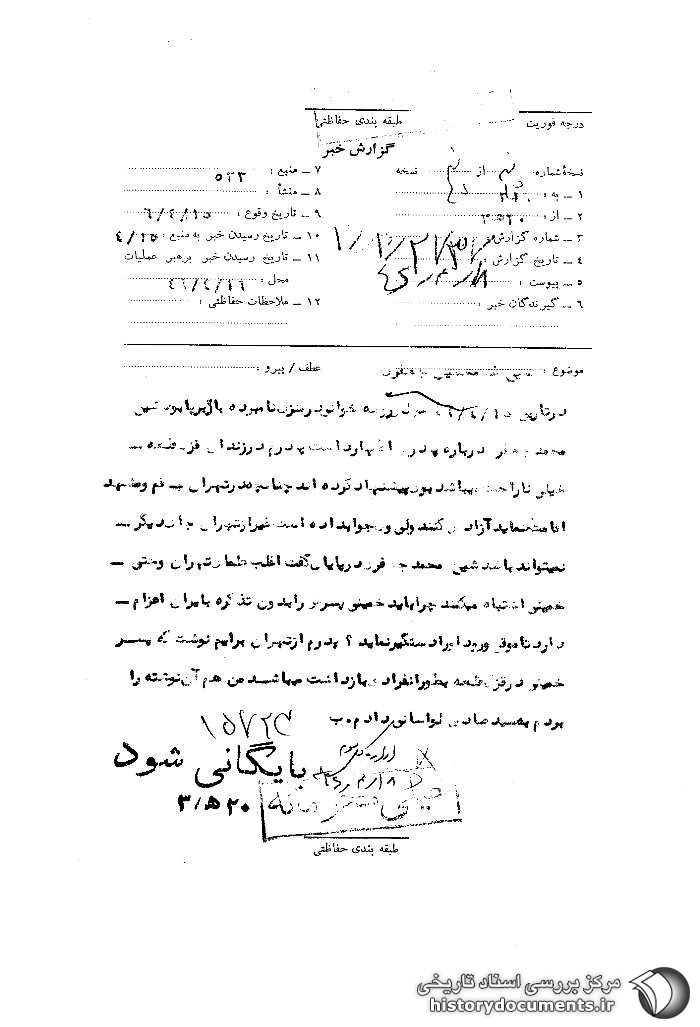 درجه فوریت
طبقه بندی حفاظتی
گزارش خبر
نسخهٔ شماره از نسخه
۱ ــ به :
۲ ــ از :
۳ ــ شماره گزارش
۴ ــ تاریخ گزارش :
۵ ــ پیوست :
۶ ــ گیرندگان خبر :
۷ ــ منبع : ۵۳۳
۸ ــ منشأ :
۹ ــ تاریخ وقوع : ۶/۴/۱۵
۱۰ ــ تاریخ رسیدن خبر به منبع : ۴/۱۵
۱۱ ــ تاریخ رسیدن خبر برهبر عملیات
محل : ۴۶/۴/۱۶
۱۲ ــ ملاحظات حفاظتی :
موضوع :
عطف / پیرو :
در تاریخ ۴۶/۴/۱۵
محمد درباره پدرم اظهار داشت پدرم در زندان قزل قلعه ــ
خیلی ناراحت میباشد بوی پیشنهاد کرده اند چنانچه در تهران ــ قم و مشهد
اقامت ننماید آزادش کنند ولی وی جواب داده است غیر از تهران جای دیگر ــ
نمیتواند باشد شیخ محمد در پایان گفت اغلب علما تهران وحتی ــ
خمینی اشتباه میکنند چرا باید خمینی پسرش را بدون تذکره بایران اعزام ــ
دارد تا موقع ورود او را دستگیر نماید ؟ پدرم از تهران برایم نوشت که پسر
خمینی در قزل قلعه بطور انفرادی بازداشت میباشد من هم آن نوشته را
بردم به سید صادق لواسانی دادم . ب
۱۵۷۲۴
اداره کل سوم
بایگانی شود
۳/ه۲۰
خیلی محرمانه
طبقه بندی حفاظتی
مرکز بررسی اسناد تاریخی
historydocuments.ir